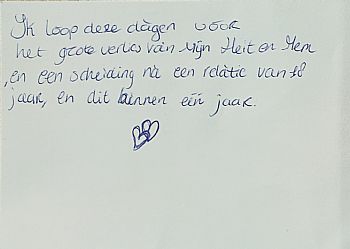 Ik loop deze dagen voor
het grote verlies van mijn Heit en Mem
, en een scheiding na een relatie van 18
jaar, en dit binnen één jaar.